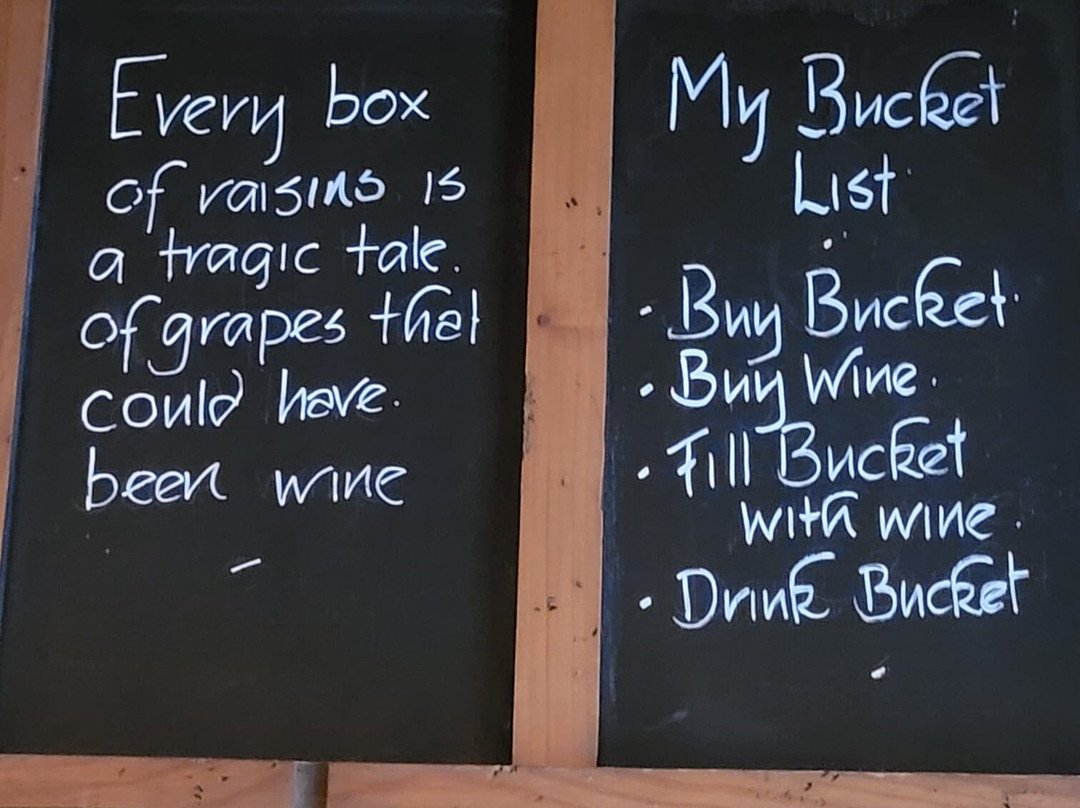 Every box
of raisins is
a tragic tale.
of grapes that
could have.
been wine
My Bucket
List
• Buy Bucket
• Buy Wine.
• Fill Bucket
with wine.
• Drink Bucket